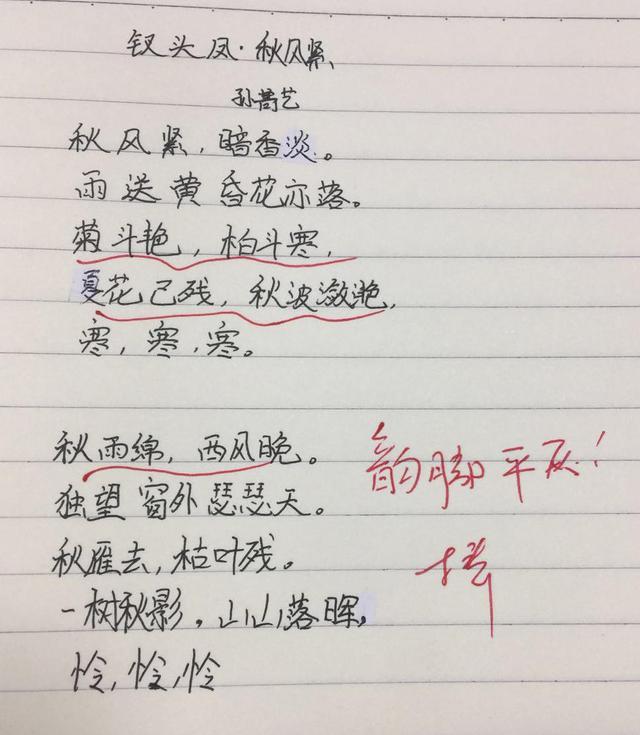 钗头凤·秋风紧
孙蒿艺
秋风紧，暗香淡。
雨送黄昏花亦落。
菊斗艳，柏斗寒，
夏花已残，秋波潋滟，
寒，寒，寒。
秋雨绵，西风晚。
独望窗外瑟瑟天。
秋雁去，枯叶残。
一树秋影，山山落晖，
怜，怜，怜
韵脚平仄！
棒